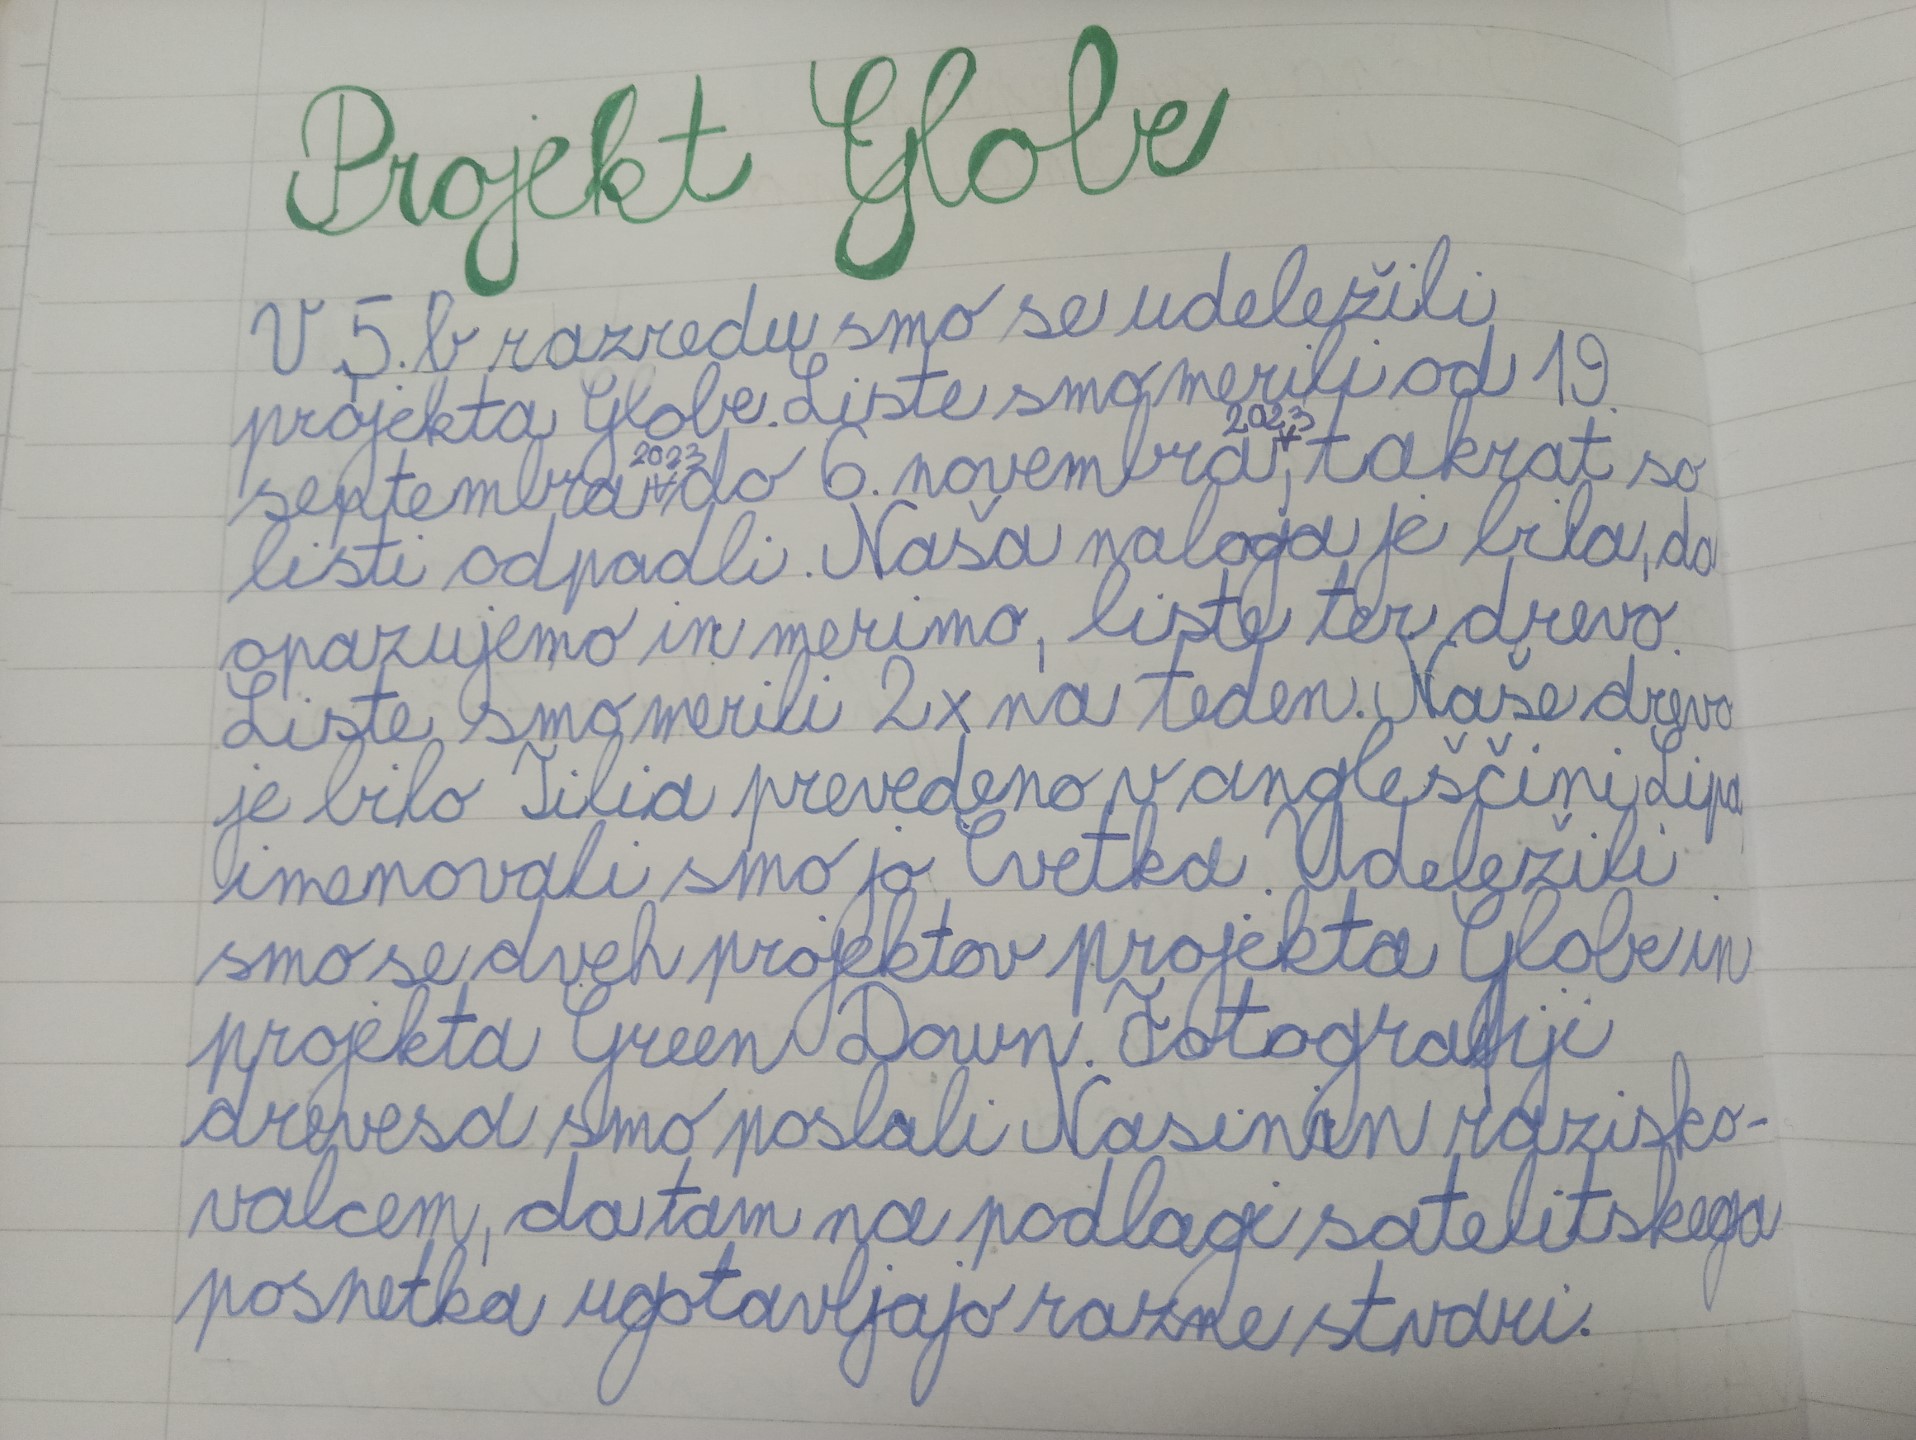 Projekt Globe
V 5. b razredu smo se udeležili
projekta Globe. Liste smo merili od 19.
septembra 2023 do 6. novembra 2023, takrat so
listi odpadli. Naša naloga je bila, da
opazujemo in merimo, liste ter drevo.
Liste smo merili 2x na teden. Naše drevo
je bilo Tilia prevedeno v angleščini Lipa,
imenovali smo jo Cvetka. Udeležili
smo se dveh projektov projekta Globe in
projekta Green Down. Fotografiji
drevesa smo poslali Nasinin razisko-
valcem, da tam na podlagi satelitskega
posnetka ugotavljajo razne stvari.